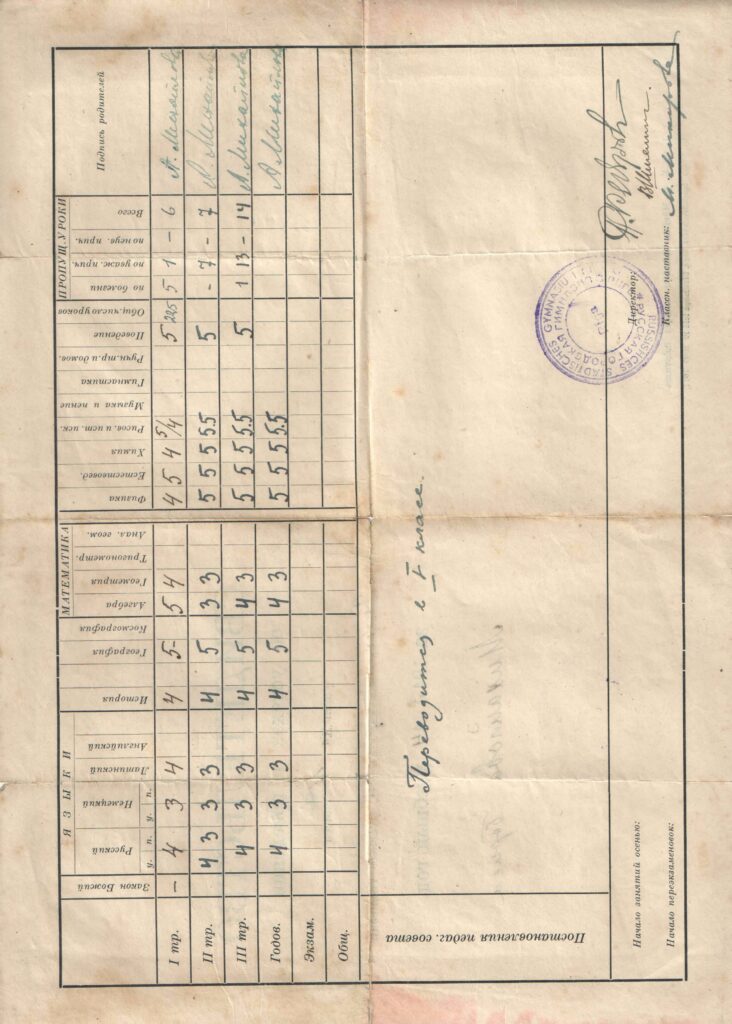 Закон Божий
ЯЗЫКИ
Русский
у. п.
Немецкий
у. п.
Латинский
Английский
История
География
Космография
МАТЕМАТИКА
Алгебра
Геометрия
Тригонометр.
Анал. геом.
Физика
Естествовед.
Химия
Рисов. и ист. иск.
Музыка и пение
Гимнастика
Ручн. тр. и домов.
Поведение
Общ. число уроков
ПРОПУЩ. УРОКИ
по болезни
по уваж. прич.
по неув. прич.
Всего
Подпись родителей
I тр. – 4 3 4 4 5- 5 4 4 5 4 5/4 5 225 5 1 – 6 А. Михайлова
II тр. 4 3 3 3 4 5 3 3 5 5 5 5.5 5 - 7 - 7 А. Михайлова
III тр. 4 3 3 4 5 4 3 5 5 5 5.5 5 1 13 - 14 А. Михайлова
Годов. 4 3 3 4 5 4 3 5 5 5 5.5 А. Михайлова
Экзам.
Общ.
Постановления педаг. совета
Переводится в V класс.
Начало занятий осенью:
Начало переэкзаменовок:
РУССКАЯ ГОРОДСКАЯ ГИМНАЗИЯ
Директор:
Классн. наставник: